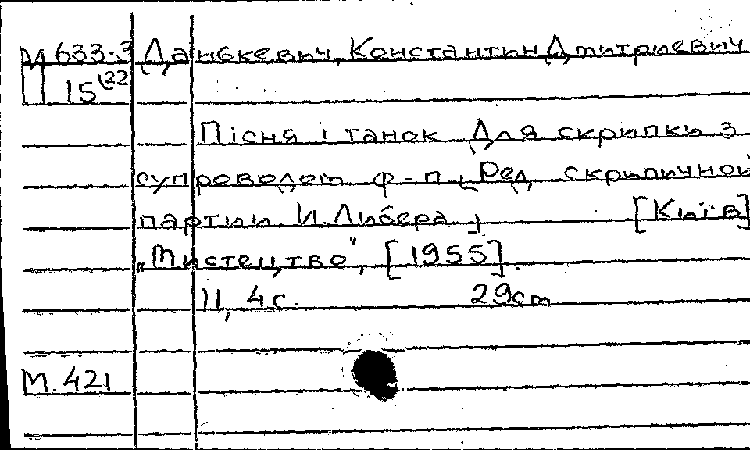 М 633.3 Данькевич, Константин Дмитриевич
П 15(22
Пісня і танок Для скрипки з
супроводом ф-п. [Ред. скрипичной
партии И. Либера] [Київ]
„Мистецтво", [1955].
11, 4 с. 29cm
М. 421